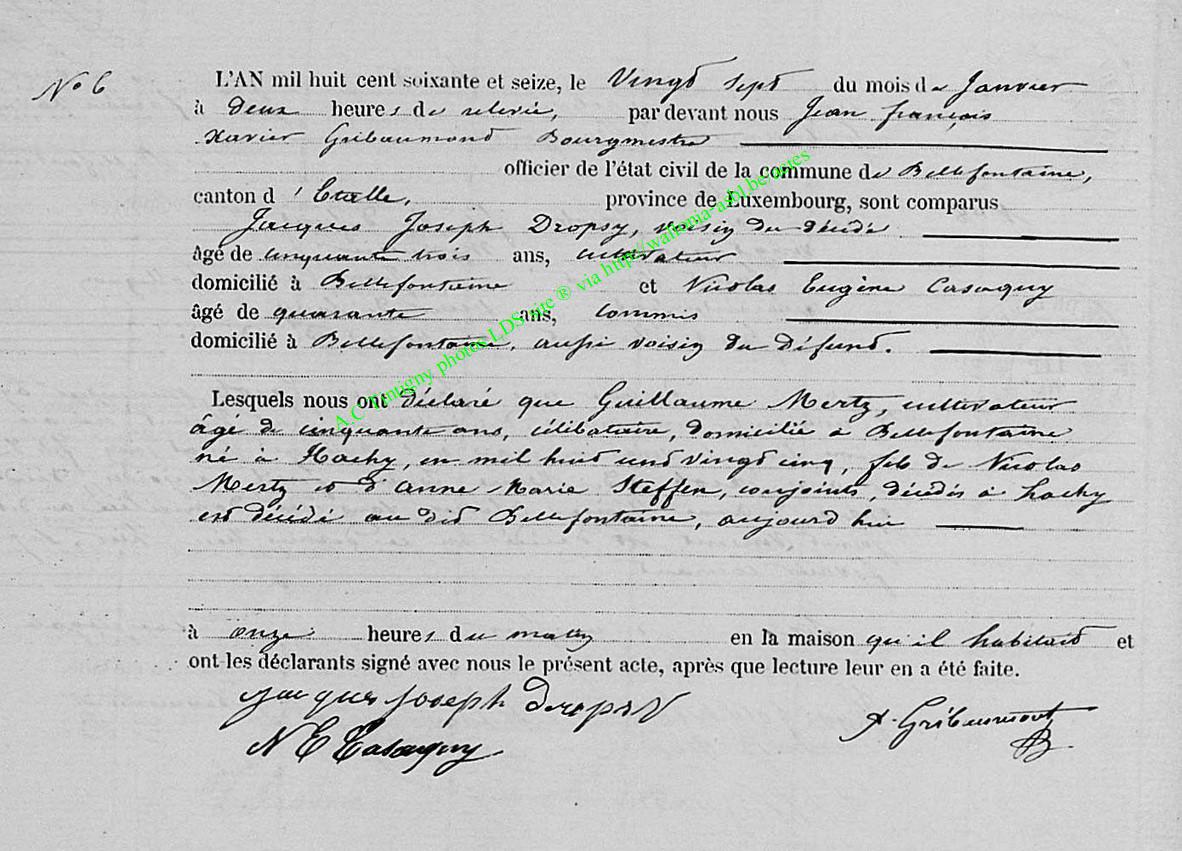 N° 6
L'AN mil huit cent soixante et seize, le Vingt sept du mois de Janvier
à deux heures de relevée, par devant nous Jean françois
Xavier Gribaumont Bourgmestre
officier de l'état civil de la commune de Bellefontaine,
canton d'Etalle, province de Luxembourg, sont comparus
Jacques Joseph Dropsy, voisin du décédé
âgé de cinquante trois ans, cultivateur
domicilié à Bellefontaine et Nicolas Eugène Casaquy
âgé de quarante ans, commis
domicilié à Bellefontaine, aussi voisin du défunt.
Lesquels nous ont déclaré que Guillaume Mertz, cultivateur
âgé de cinquante ans, célibataire, domicilié à Bellefontaine
né à Hachy, en mil huit cent vingt cinq, fils de Nicolas
Mertz et d'anne Marie Steffen, conjoints, décédés à hachy
est décédé au dit Bellefontaine, aujourd'hui
à onze heures du matin en la maison qu'il habitait et
ont les déclarants signé avec nous le présent acte, après que lecture leur en a été faite.
jacques joseph dropsy
N E Casaquy
Gribaumont
A.C Tintigny photos LDS site ® via http://wallonia-asbl.be/actes